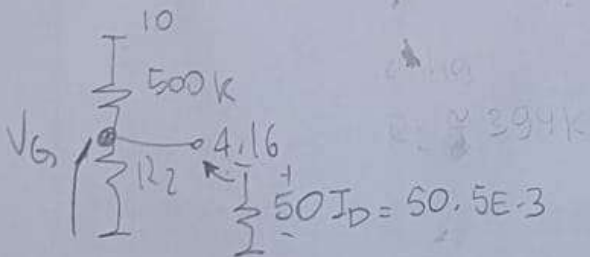 10
500K
VG
4.16
R2
+
50ID = 50.5E-3
-
394K